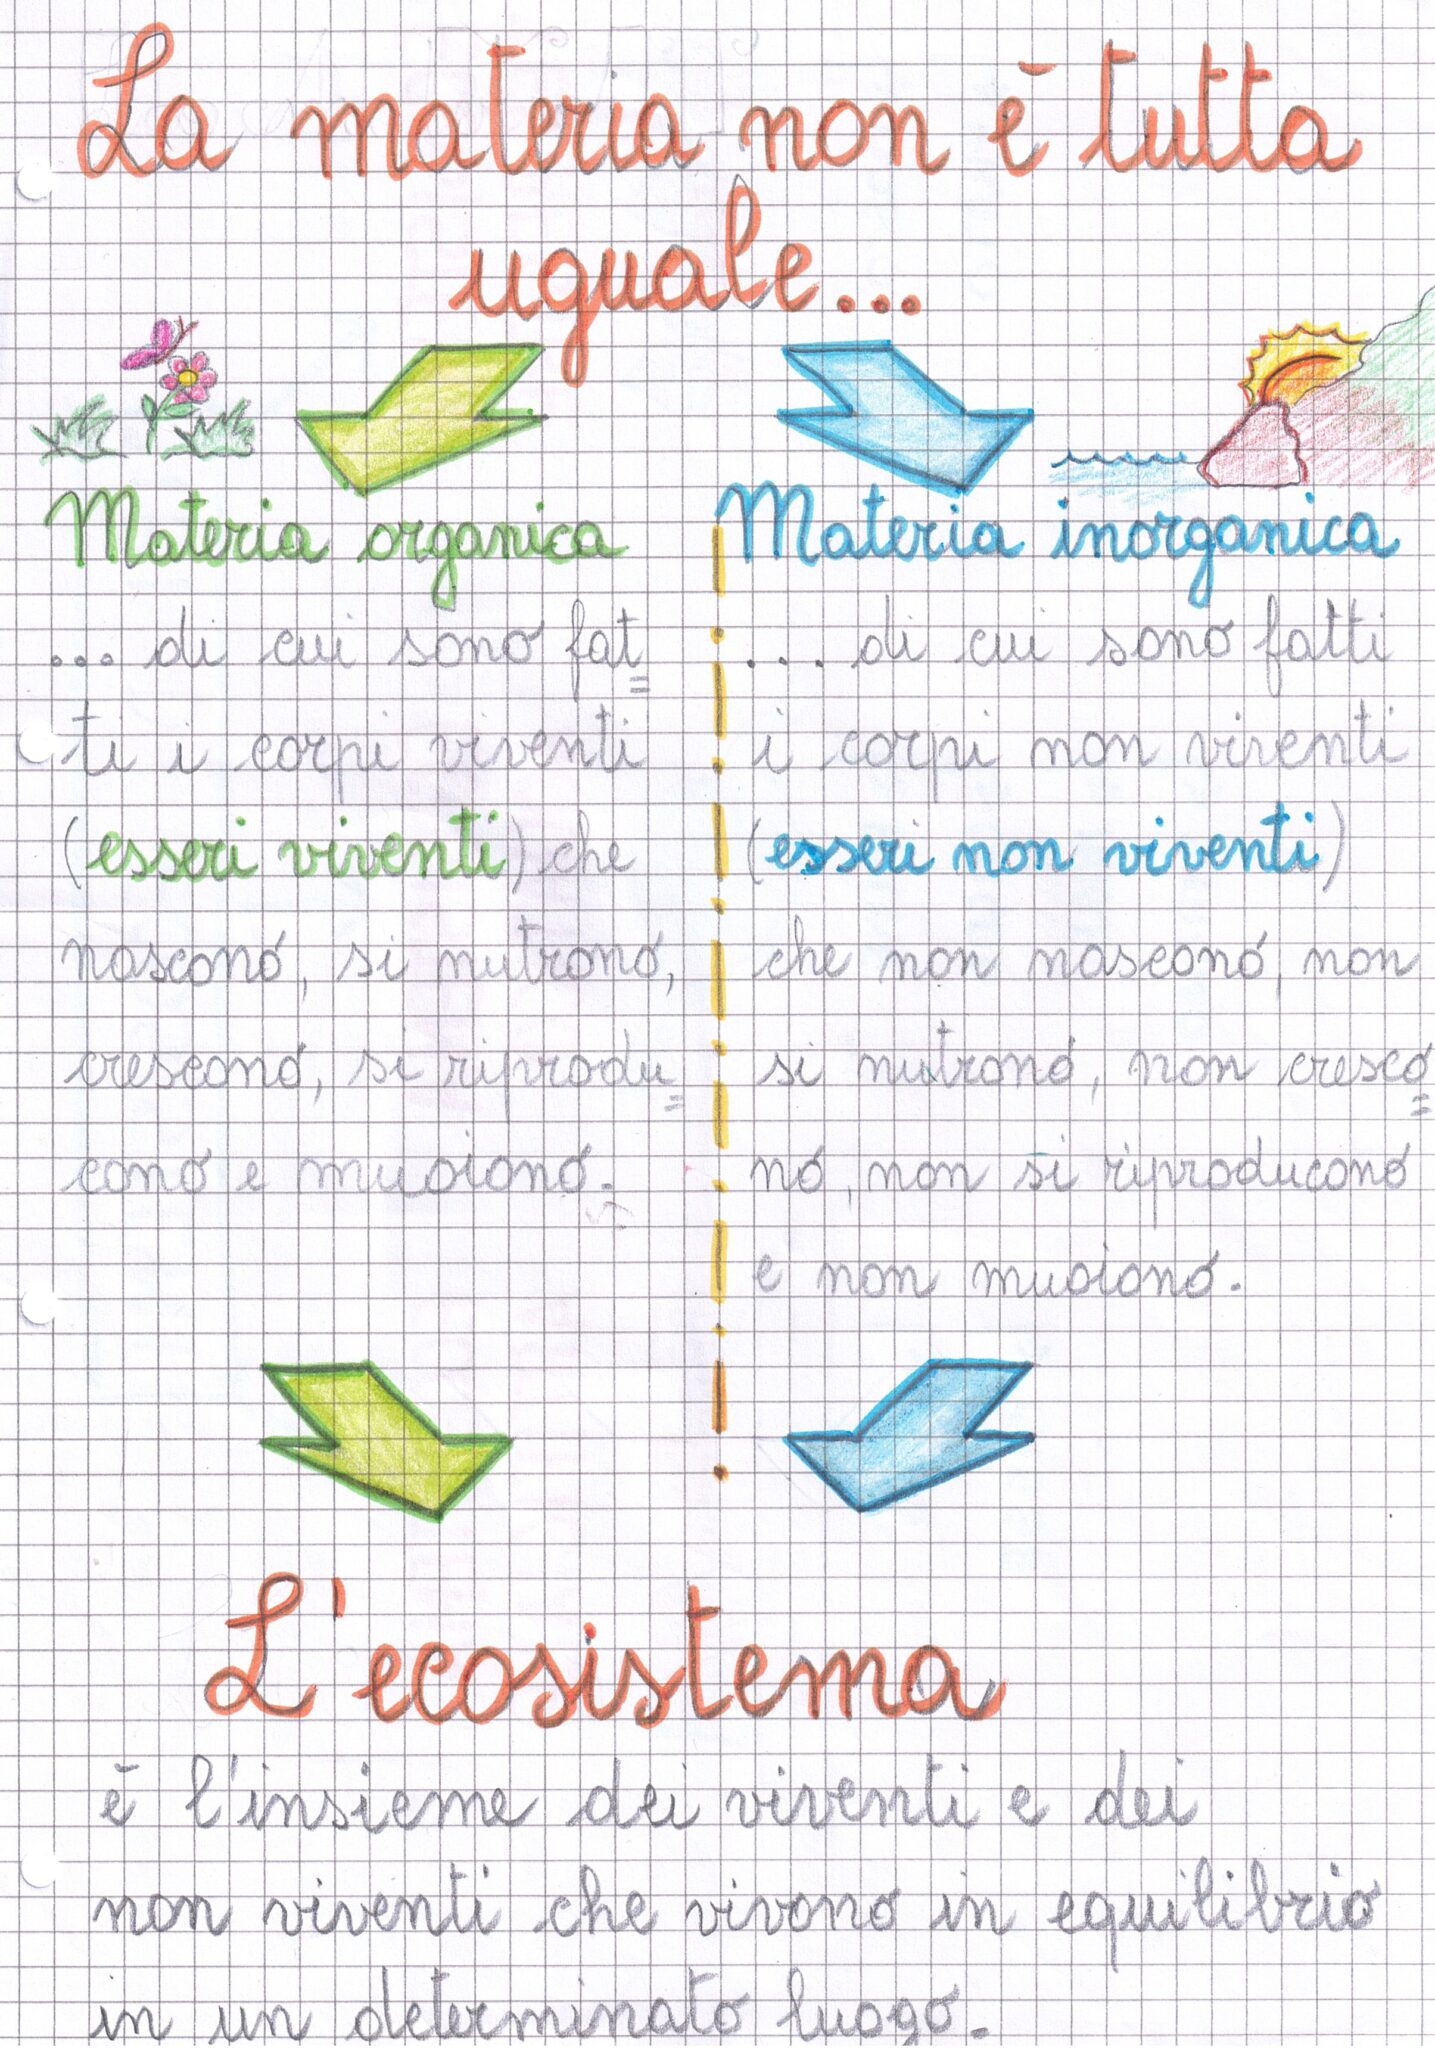 La materia non è tutta
uguale...
Materia organica
... di cui sono fat=
ti i corpi viventi
(esseri viventi) che
nascono, si nutrono,
crescono, si riprodu=
cono e muoiono.
Materia inorganica
... di cui sono fatti
i corpi non viventi
(esseri non viventi)
che non nascono, non
si nutrono, non cresco=
no, non si riproducono
e non muoiono.
L'ecosistema
è l'insieme dei viventi e dei
non viventi che vivono in equilibrio
in un determinato luogo.